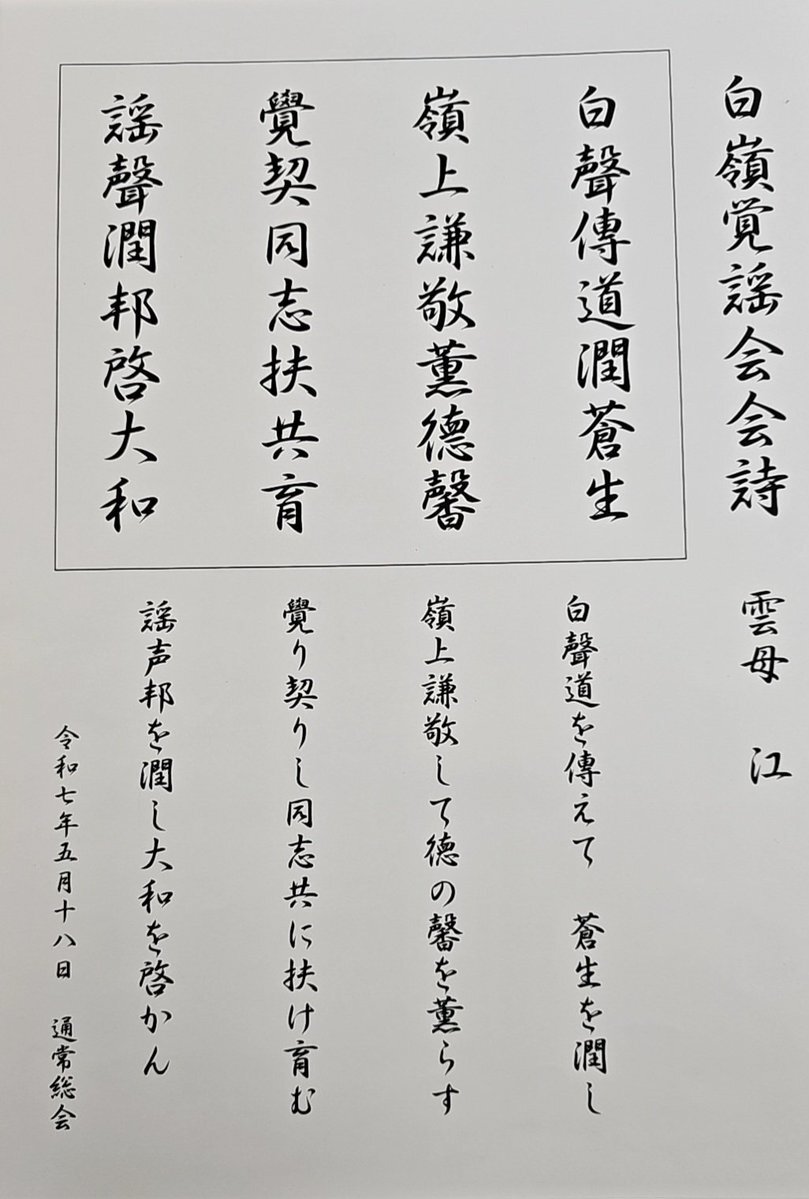 白嶺覚謡会会詩　雲母　江
白聲傳道潤蒼生
嶺上謙敬薫德馨
覺契同志扶共育
謡聲潤邦啓大和
白聲道を傳えて　蒼生を潤し
嶺上謙敬して徳の馨を薫らす
覺り契りし同志共に扶け育む
謡声邦を潤し大和を啓かん
令和七年五月十八日　通常総会